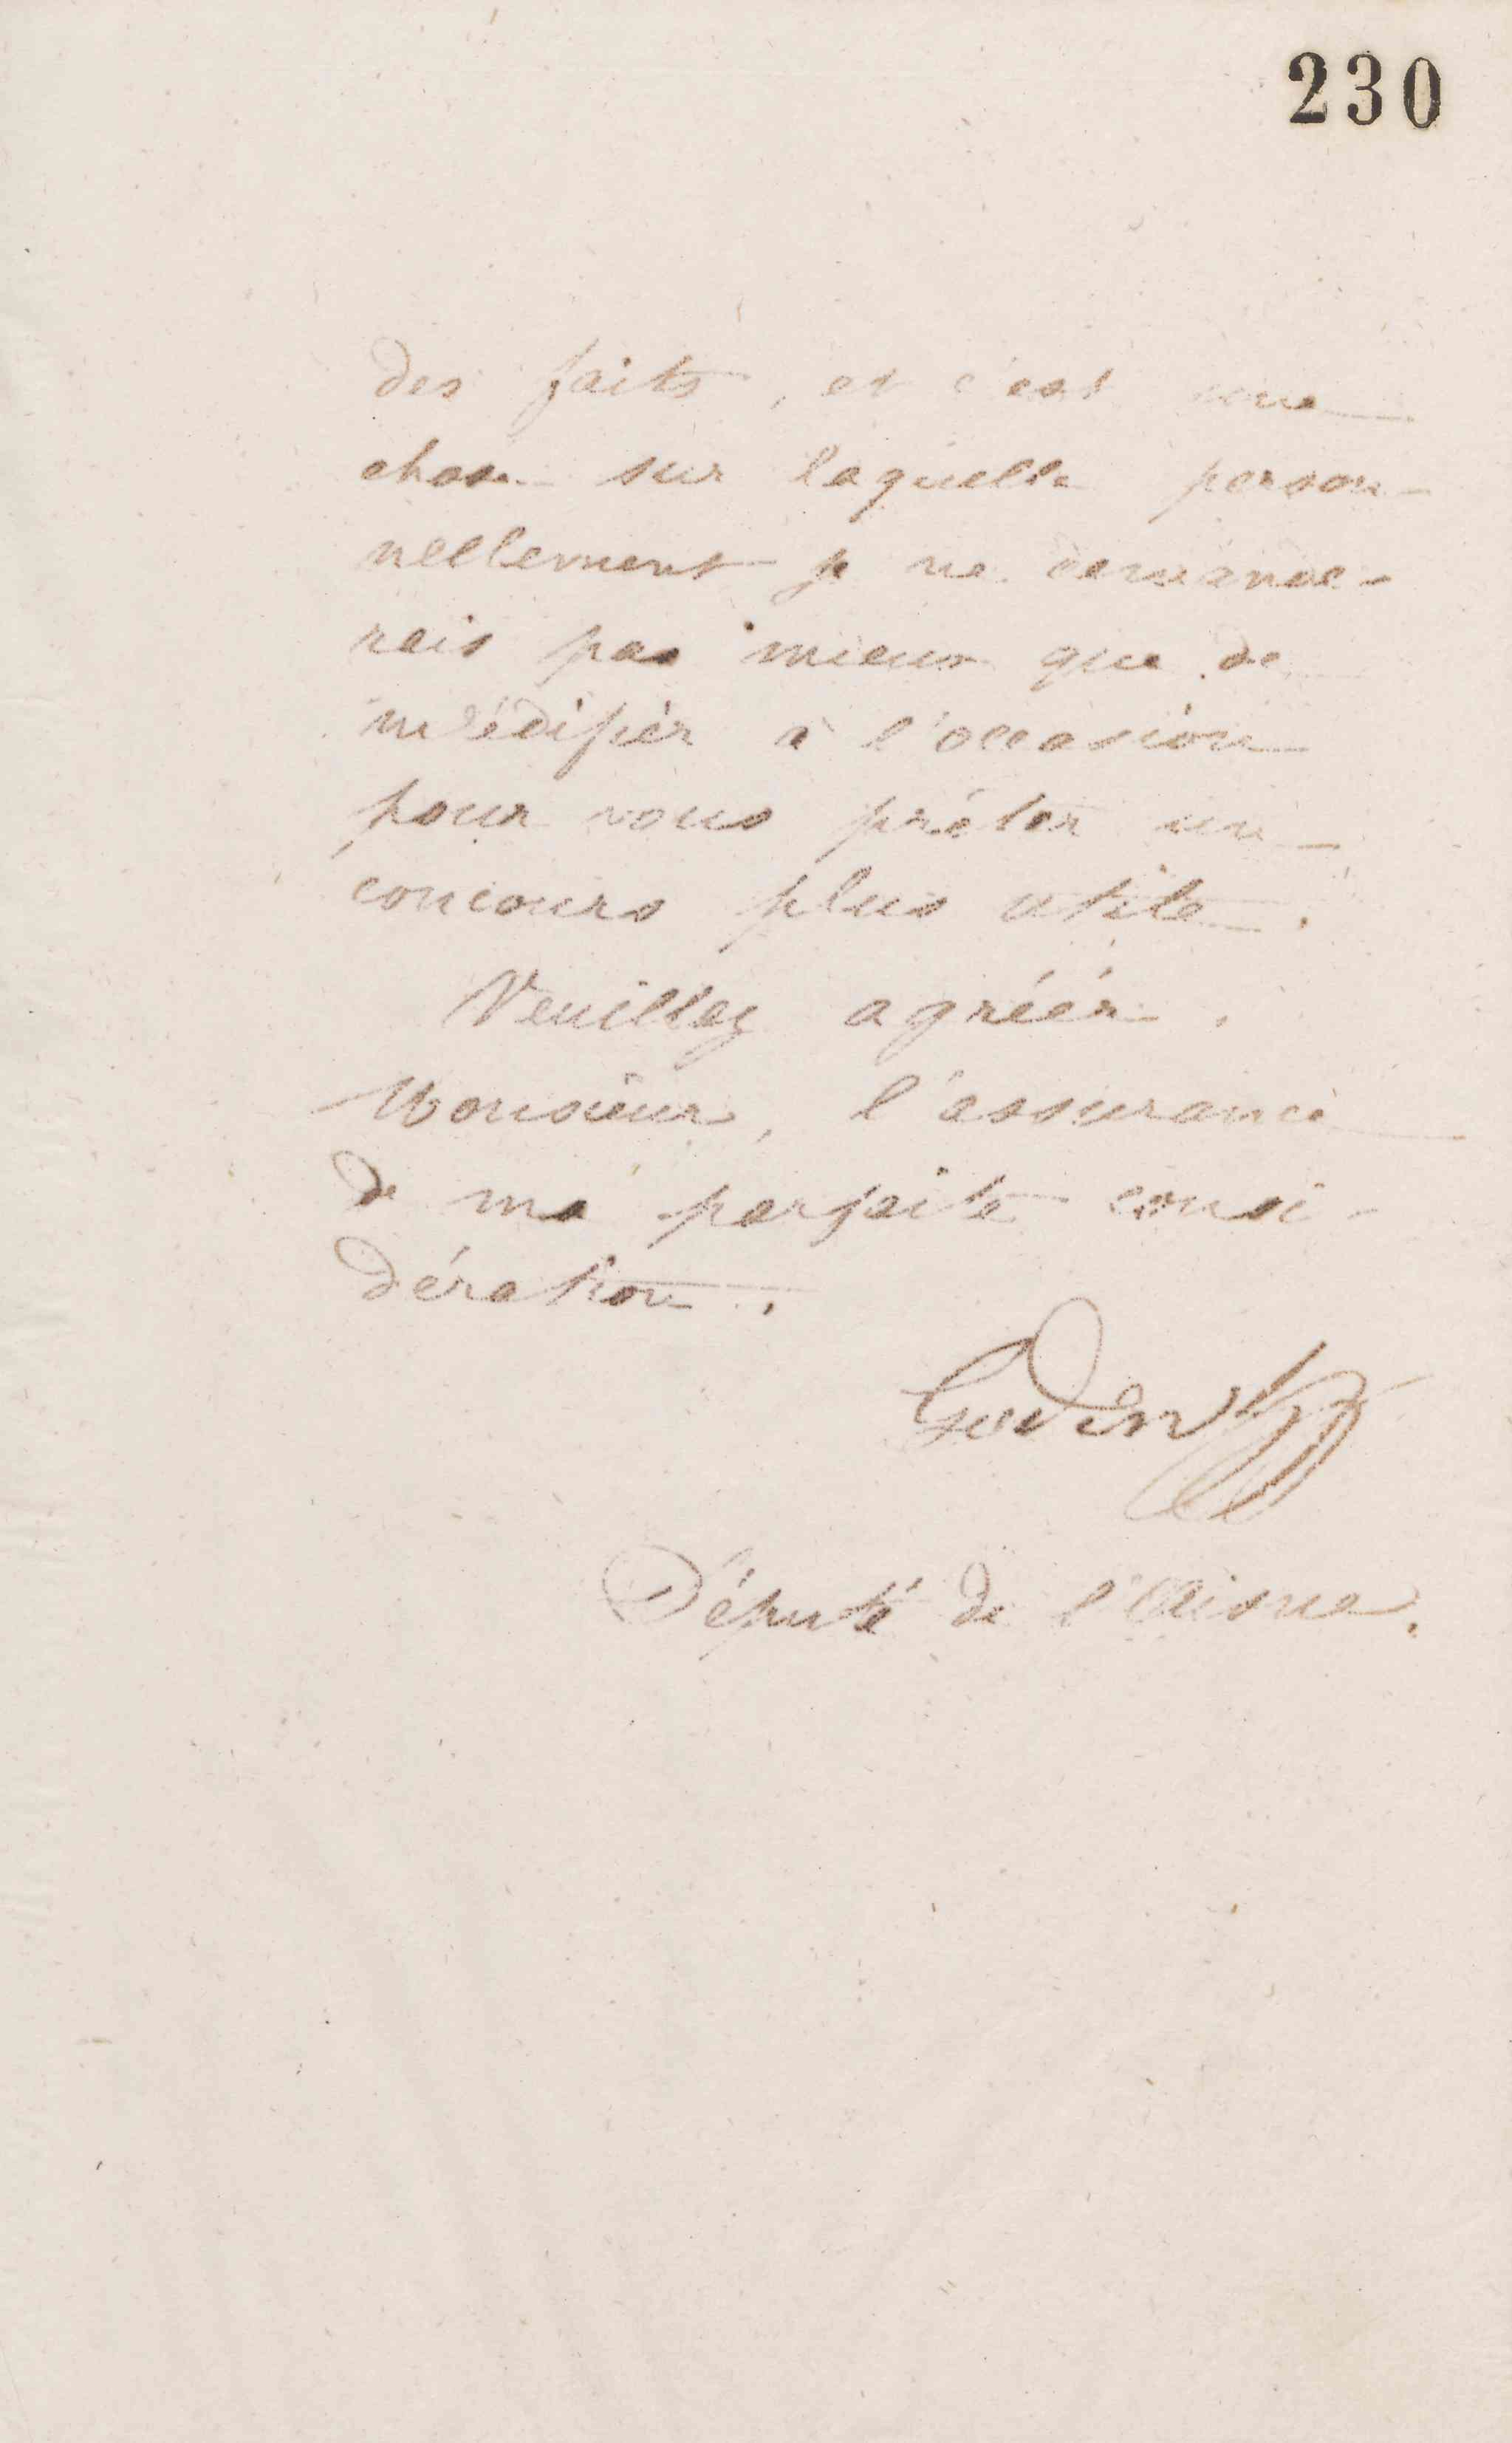 230
des faits, et c'est une
chose sur laquelle person-
nellement je ne demande-
rais pas mieux que de
m'édifier à l'occasion
pour vous prêter un
concours plus utile.
Veuillez agréer,
Monsieur, l'assurance
de ma parfaite consi-
dération.
Godin
Député de l'Aisne.